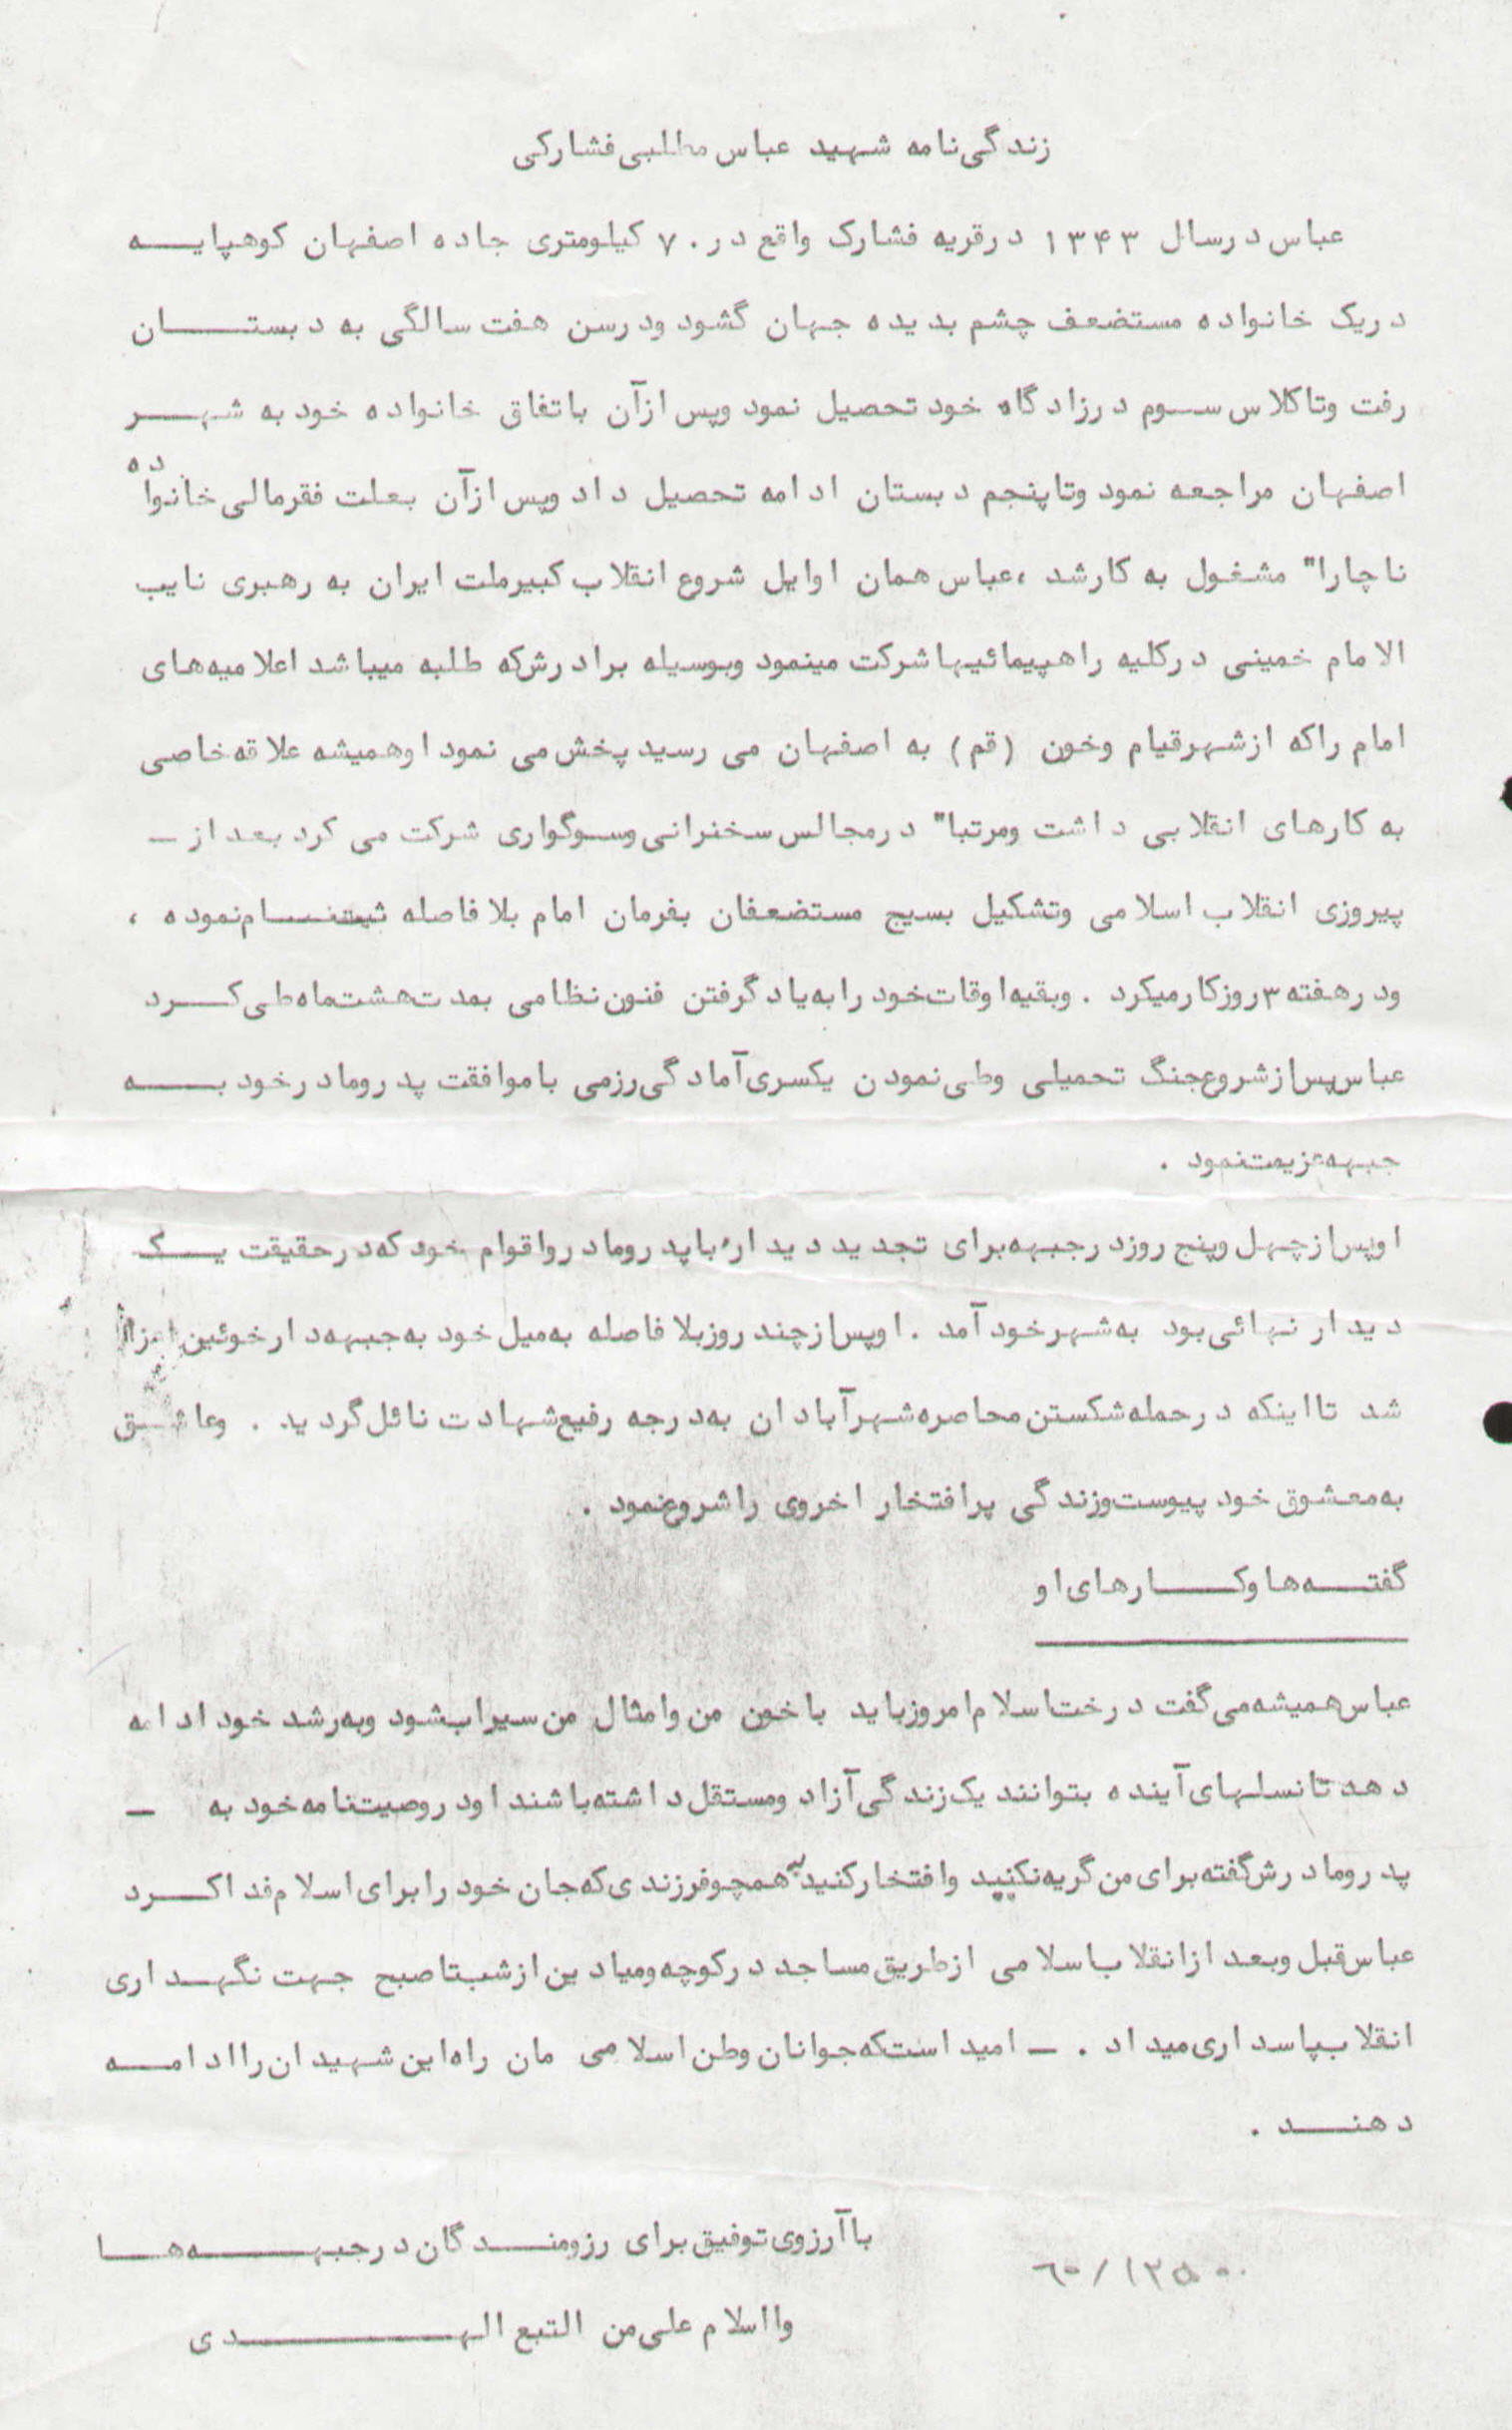 زندگی‌نامه شهید عباس مطلبی فشارکی
عباس در سال ۱۳۴۳ در قریه فشارک واقع در ۷۰ کیلومتری جاده اصفهان کوهپایه
در یک خانواده مستضعف چشم بدیده جهان گشود ودر سن هفت سالگی به دبستان
رفت وتا کلاس سوم در زادگاه خود تحصیل نمود وپس از آن باتفاق خانواده خود به شهر
اصفهان مراجعه نمود وتا پنجم دبستان ادامه تحصیل داد وپس از آن بعلت فقر مالی خانواده
ناچارا" مشغول به کار شد ، عباس همان اوایل شروع انقلاب کبیر ملت ایران به رهبری نایب
الامام خمینی در کلیه راهپیمائیها شرکت مینمود وبوسیله برادرش که طلبه میباشد اعلامیه‌های
امام را که از شهر قیام وخون (قم) به اصفهان می رسید پخش می نمود او همیشه علاقه خاصی
به کارهای انقلابی داشت ومرتبا" در مجالس سخنرانی وسوگواری شرکت می کرد بعد از ـ
پیروزی انقلاب اسلامی وتشکیل بسیج مستضعفان بفرمان امام بلافاصله ثبت‌نام نموده ،
ودر هفته ۳ روز کار میکرد . وبقیه اوقات خود را به یاد گرفتن فنون نظامی بمدت هشت ماه طی کرد
عباس پس از شروع جنگ تحمیلی وطی نمودن یکسری آمادگی رزمی با موافقت پدر ومادر خود به
جبهه عزیمت نمود .
او پس از چهل وپنج روز در جبهه برای تجدید دیدار با پدر ومادر واقوام خود که در حقیقت یک
دیدار نهائی بود به شهر خود آمد . او پس از چند روز بلافاصله به میل خود به جبهه دارخوئین
شد تا اینکه در حمله شکستن محاصره شهر آبادان به درجه رفیع شهادت نائل گردید . وعاشق
به معشوق خود پیوست وزندگی پر افتخار اخروی را شروع نمود .
گفته‌ها وکارهای او
عباس همیشه می گفت درخت اسلام امروز باید با خون من وامثال من سیراب شود وبه رشد خود ادامه
دهد تا نسلهای آینده بتوانند یک زندگی آزاد ومستقل داشته باشند او در وصیت‌نامه خود به ـ
پدر ومادرش گفته برای من گریه نکنید وافتخار کنید به همچو فرزندی که جان خود را برای اسلام فدا کرد
عباس قبل وبعد از انقلاب اسلامی از طریق مساجد در کوچه ومیادین از شب تا صبح جهت نگهداری
انقلاب پاسداری میداد . ـ امید است که جوانان وطن اسلامی مان راه این شهیدان را ادامه
دهند .
با آرزوی توفیق برای رزومندگان در جبهه‌ها
وااسلام علی من التبع الهدی